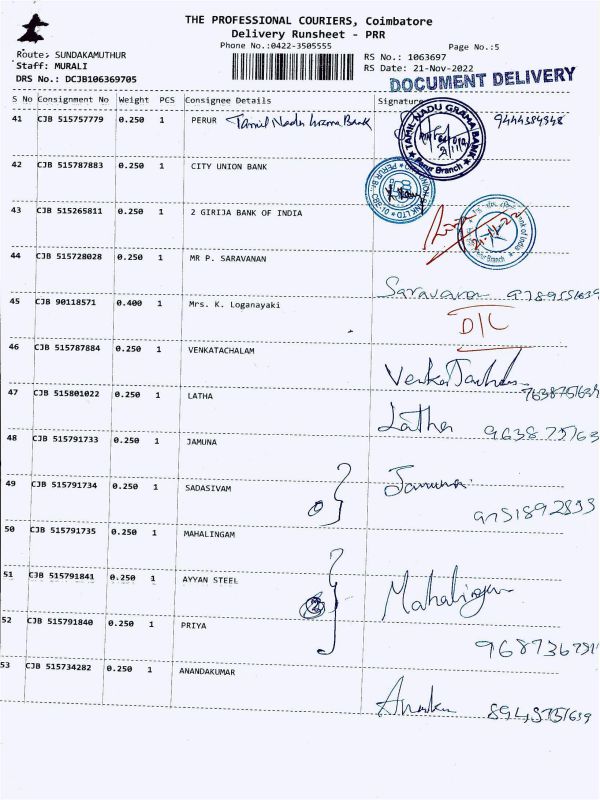 THE PROFESSIONAL COURIERS, Coimbatore
Delivery Runsheet - PRR
Phone No.:0422-3505555
Page No.:5
Route: SUNDAKAMUTHUR
Staff: MURALI
DRS No.: DCJB106369705
RS No.: 1063697
RS Date: 21-Nov-2022
DOCUMENT DELIVERY
S No Consignment No Weight PCS Consignee Details Signature
41 CJB 515757779 0.250 1 PERUR Tamil Nadu Grama Bank 9444384348
TAMIL NADU GRAMA BANK
Perur Branch
42 CJB 515787883 0.250 1 CITY UNION BANK
43 CJB 515265811 0.250 1 2 GIRIJA BANK OF INDIA
44 CJB 515728028 0.250 1 MR P. SARAVANAN
Saravanan
45 CJB 90118571 0.400 1 Mrs. K. Loganayaki
D/L
46 CJB 515787884 0.250 1 VENKATACHALAM
47 CJB 515801022 0.250 1 LATHA
Latha 963875163
48 CJB 515791733 0.250 1 JAMUNA
49 CJB 515791734 0.250 1 SADASIVAM
Jamuna
9751892833
50 CJB 515791735 0.250 1 MAHALINGAM
51 CJB 515791841 0.250 1 AYYAN STEEL
Mahalingam
52 CJB 515791840 0.250 1 PRIYA
53 CJB 515734282 0.250 1 ANANDAKUMAR